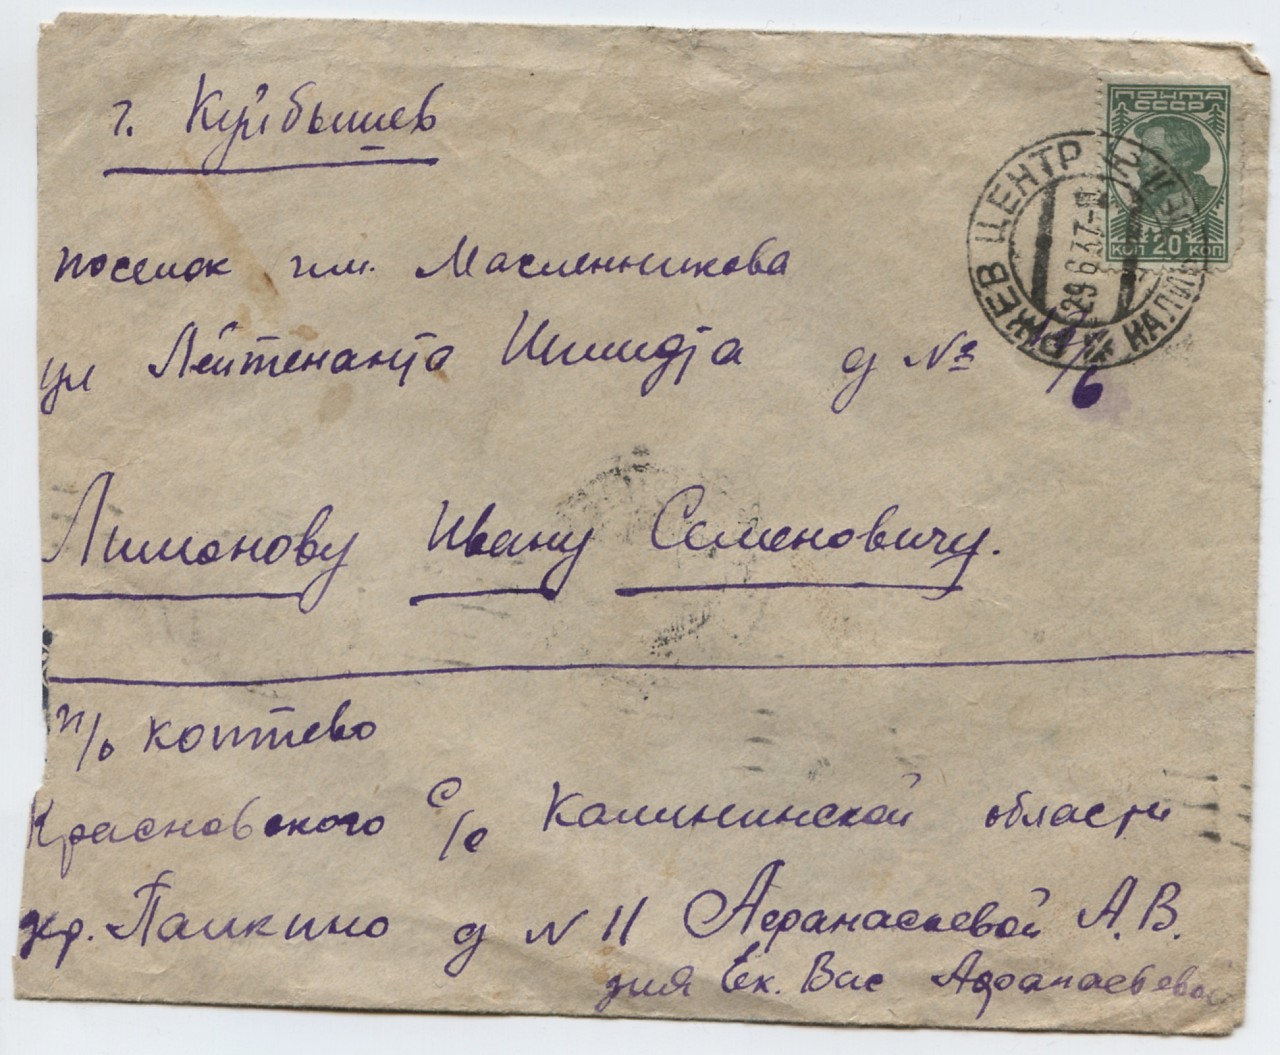 г. Куйбышев
ПОЧТА
СССР
КОП 20 КОП
РЖЕВ ЦЕНТР
29 6 37
поселок им. Масленникова
ул Лейтенанта Шмидта д №
Лимонову Ивану Семеновичу.
п/о Коптево
Красновского с/с Калининской области
дер. Палкино д N 11 Афанасьевой А. В.
для Ек. Вас Афанасьевой